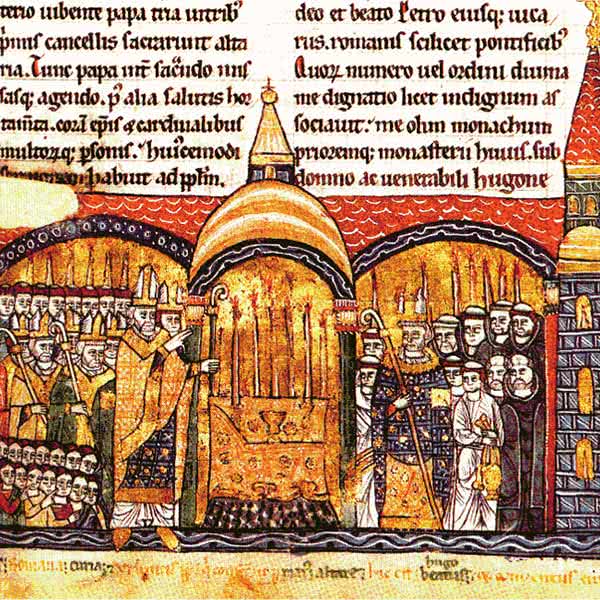 terio iubente papa tria in trib;
p̄mis cancellis sacrarunt alta
ria. Tunc papa int̄ sac̄ndo mis
sasq; agendo. p̄ alia salutis hor
tam̄ta. corā ep̄is & cardinalibus
multorq; p̄sonis. huiscemodi
habuit ad pp̄lm.
deo et beato Petro eiusq; uica
riis. romanis scilicet pontificib;
Quoꝝ numero uel ordini diuina
me dignatio licet indignum as
sociauit. me olim monachum
prioremq; monasterii huius. sub
domno ac uenerabili hugone
romana curia; altare; hic est
hugo